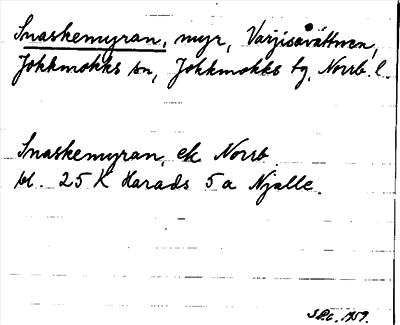 Snaskemyran, myr, Varjisåvättnen,
Jokkmokks sn, Jokkmokks tg, Norrb. l.
Snaskemyran, ek Norrb
bl. 25 K Harads 5a Njalle.
1959.